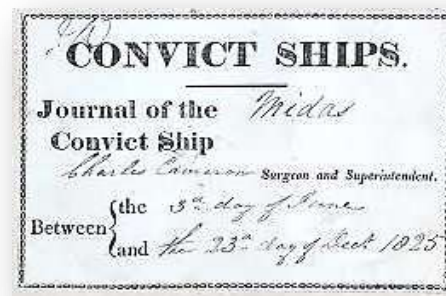 CONVICT SHIPS.
Journal of the Midas
Convict Ship
Charles Cameron Surgeon and Superintendent.
the 3rd day of June
Between
and the 23rd day of Decr 1825